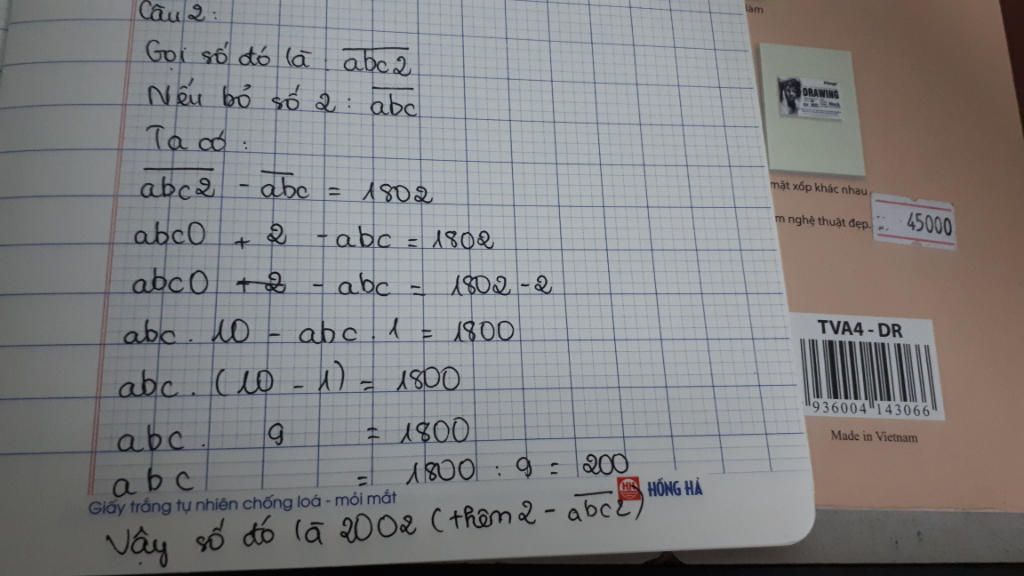 Câu 2:
Gọi số đó là abc2
Nếu bỏ số 2: abc
Ta có:
abc2 - abc = 1802
abc0 + 2 - abc = 1802
abc0 + 2 - abc = 1802 - 2
abc. 10 - abc. 1 = 1800
abc. (10 - 1) = 1800
abc. 9 = 1800
abc = 1800 : 9 = 200
Giấy trắng tự nhiên chống loá - mỏi mắt
HH HỒNG HÀ
Vậy số đó là 2002 (thêm 2 - abc2)
làm
DRAWING
mặt xốp khác nhau
m nghệ thuật đẹp.
45000
TVA4 - DR
936004 143066
Made in Vietnam